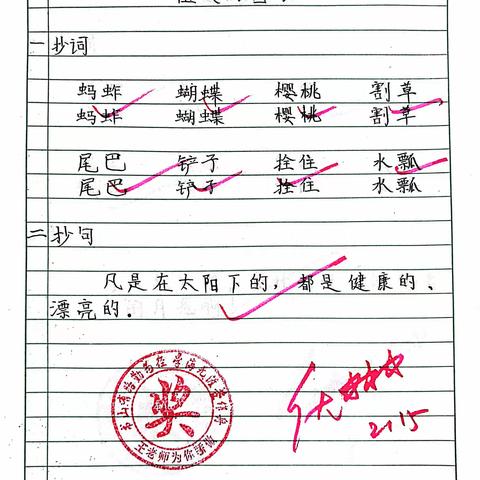 一 抄词
蚂蚱 蝴蝶 樱桃 割草
蚂蚱 蝴蝶 樱桃 割草
尾巴 铲子 拴住 水瓢
尾巴 铲子 拴住 水瓢
二 抄句
凡是在太阳下的，都是健康的、
漂亮的.
书山有路勤为径 学海无涯苦作舟
奖
王老师为你骄傲
优
2.15